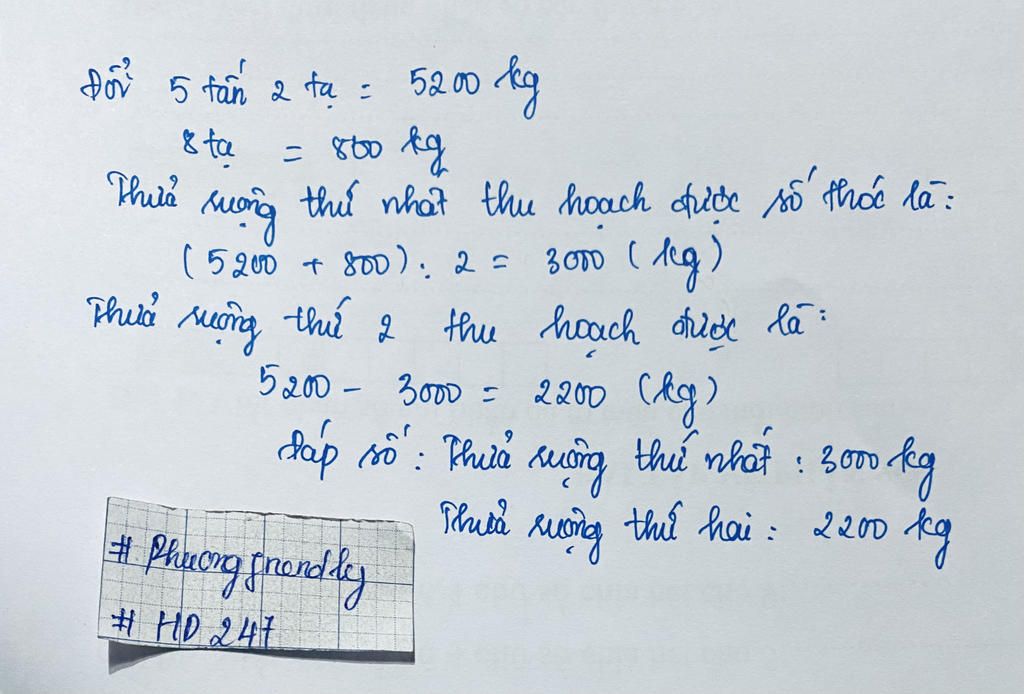 Đổi 5 tấn 2 tạ = 5200 kg
8 tạ = 800 kg
Thửa ruộng thứ nhất thu hoạch được số thóc là:
(5200 + 800) : 2 = 3000 (kg)
Thửa ruộng thứ 2 thu hoạch được là:
5200 - 3000 = 2200 (kg)
Đáp số : Thửa ruộng thứ nhất : 3000 kg
Thửa ruộng thứ hai : 2200 kg
# Phuongfriendly
# HD 247